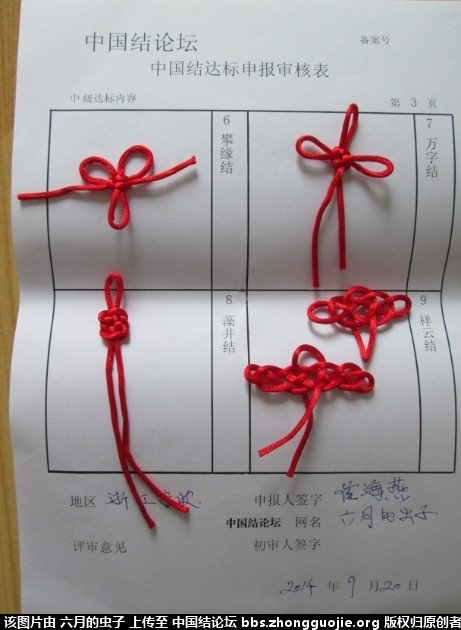 中国结论坛
备案号
中国结达标申报审核表
中级达标内容
第 3 页
6 攀缘结
7 万字结
8 藻井结
9 祥云结
地区 浙江宁波
申报人签字
海燕
中国结论坛 网名 六月的虫子
评审意见
初审人签字
2014 年 9 月 20 日
该图片由 六月的虫子 上传至 中国结论坛 bbs.zhongguojie.org 版权归原创者